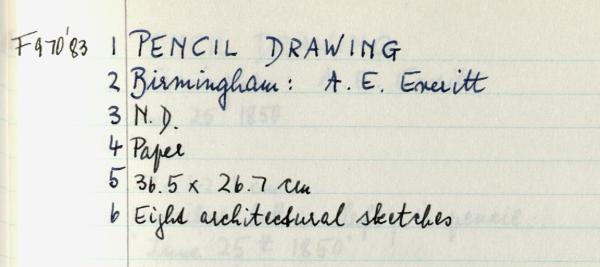 F970'83 1 PENCIL DRAWING
2 Birmingham: A. E. Everitt
3 N.D.
4 Paper
5 36.5 x 26.7 cm
6 Eight architectural sketches